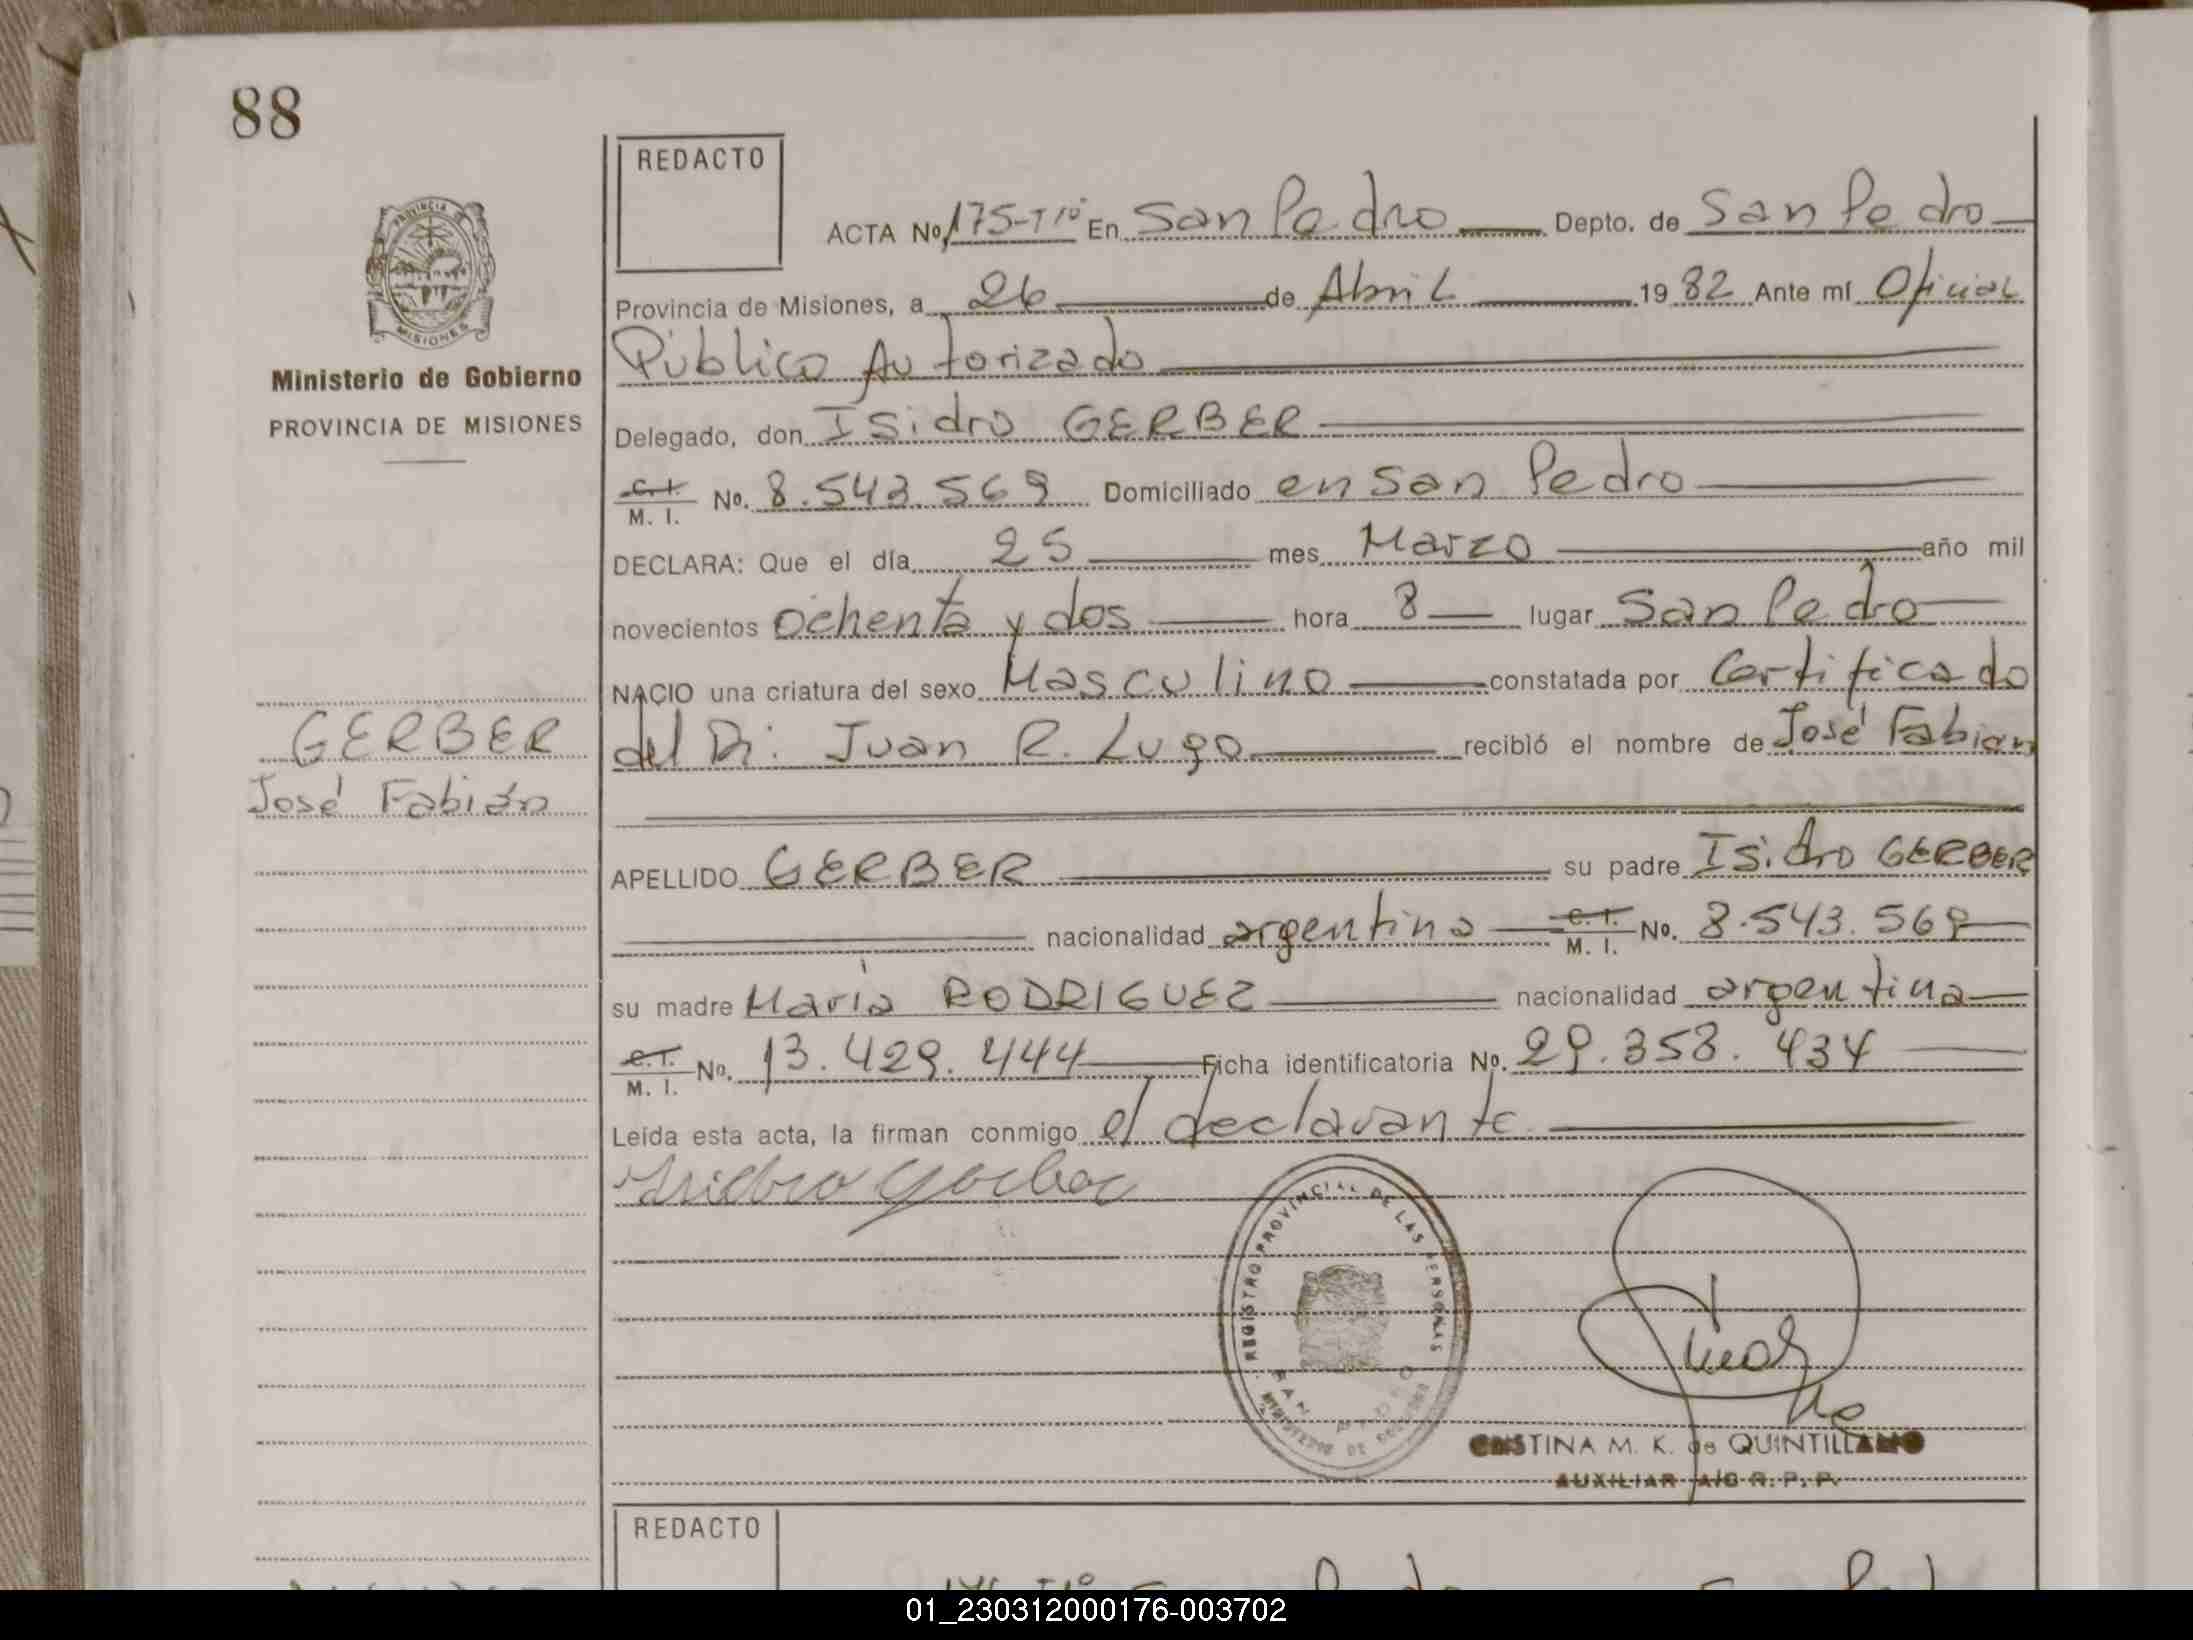 88
REDACTO
ACTA No. 175-Tº1º En San Pedro Depto. de San Pedro
Provincia de Misiones, a 26 de Abril 1982 Ante mí Oficial
Público Autorizado
Ministerio de Gobierno
PROVINCIA DE MISIONES
Delegado, don Isidro GERBER
C. I. M. I. No. 8.543.569 Domiciliado en San Pedro
DECLARA: Que el día 25 mes Marzo año mil
novecientos ochenta y dos hora 8 lugar San Pedro
NACIO una criatura del sexo Masculino constatada por Certificado
del Dr. Juan R. Lugo recibió el nombre de José Fabián
GERBER
José Fabián
APELLIDO GERBER su padre Isidro GERBER
nacionalidad argentina C. I. M. I. No. 8.543.569
su madre María RODRIGUEZ nacionalidad argentina
C. I. M. I. No. 13.429.444 Ficha identificatoria No. 29.358.434
Leída esta acta, la firman conmigo el declarante
Isidro Gerber
REGISTRO PROVINCIAL DE LAS PERSONAS
SAN PEDRO
MINISTERIO DE GOBIERNO
CRISTINA M. K. de QUINTILLANO
AUXILIAR A/C R. P. P.
REDACTO
01_230312000176-003702